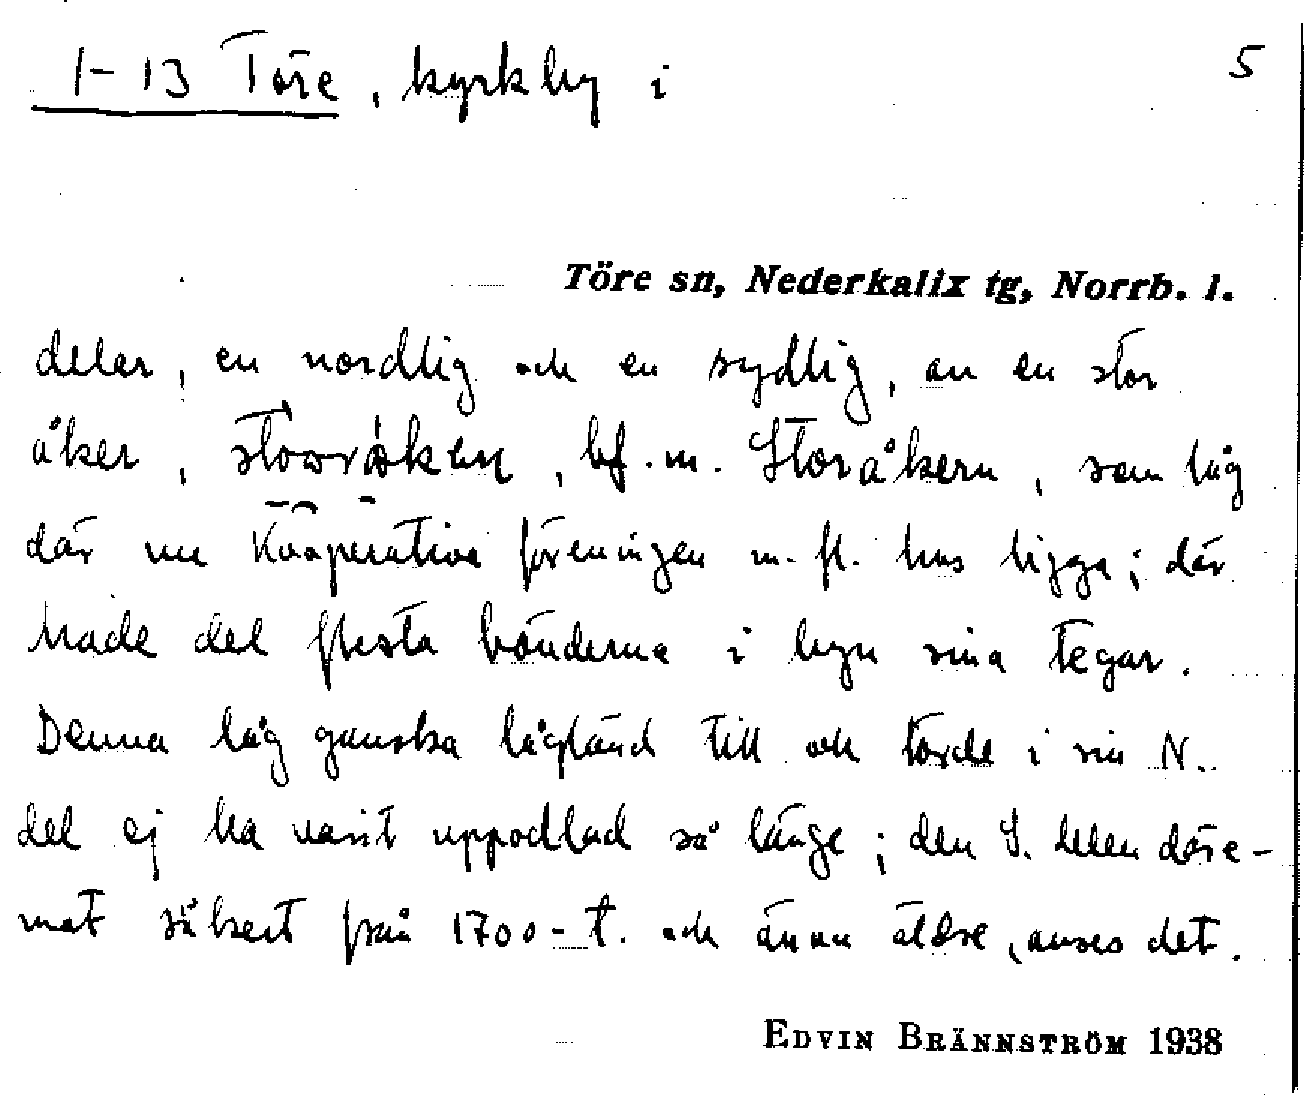 1-13 Töre, kyrkby i
5
Töre sn, Nederkalix tg, Norrb. l.
delar, en nordlig och en sydlig, av en stor
åker, bf. m. Storåkern, som låg
där nu Kooperativa föreningen m. fl. hus ligga; där
hade del flesta bönderna i byn sina tegar.
Denna låg ganska lågländ till och torde i sin N.
del ej ha varit uppodlad så länge; den S. delen däre-
mot säkert från 1700-t. och ännu äldre, anses det.
EDVIN BRÄNNSTRÖM 1938